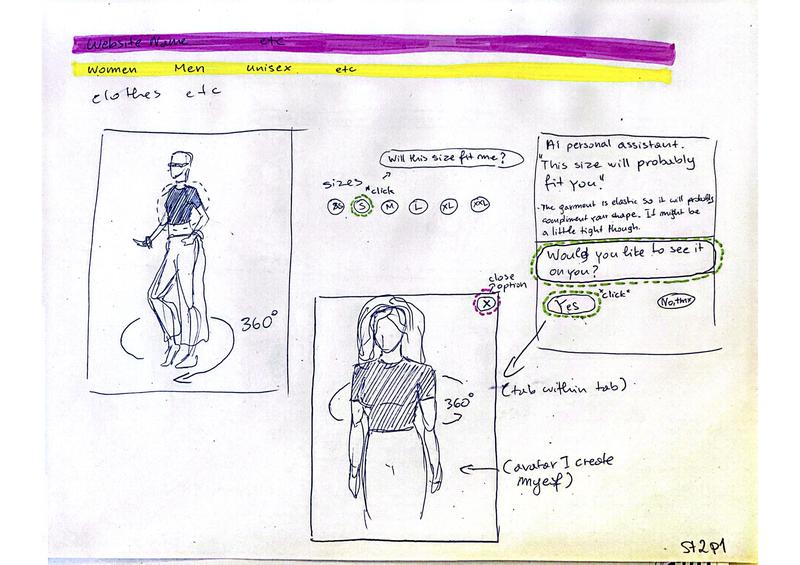 Website Name etc
Women Men Unisex etc
clothes etc
Will this size fit me?
sizes *click
XS S M L XL XXL
360°
AI personal assistant.
"This size will probably
fit you."
-The garment is elastic so it will probably
compliment your shape. It might be
a little tight though.
Would you like to see it
on you?
Yes *click* No, thnx
close
option
X
(tab within tab)
360°
(avatar I create
myself)
St2p1